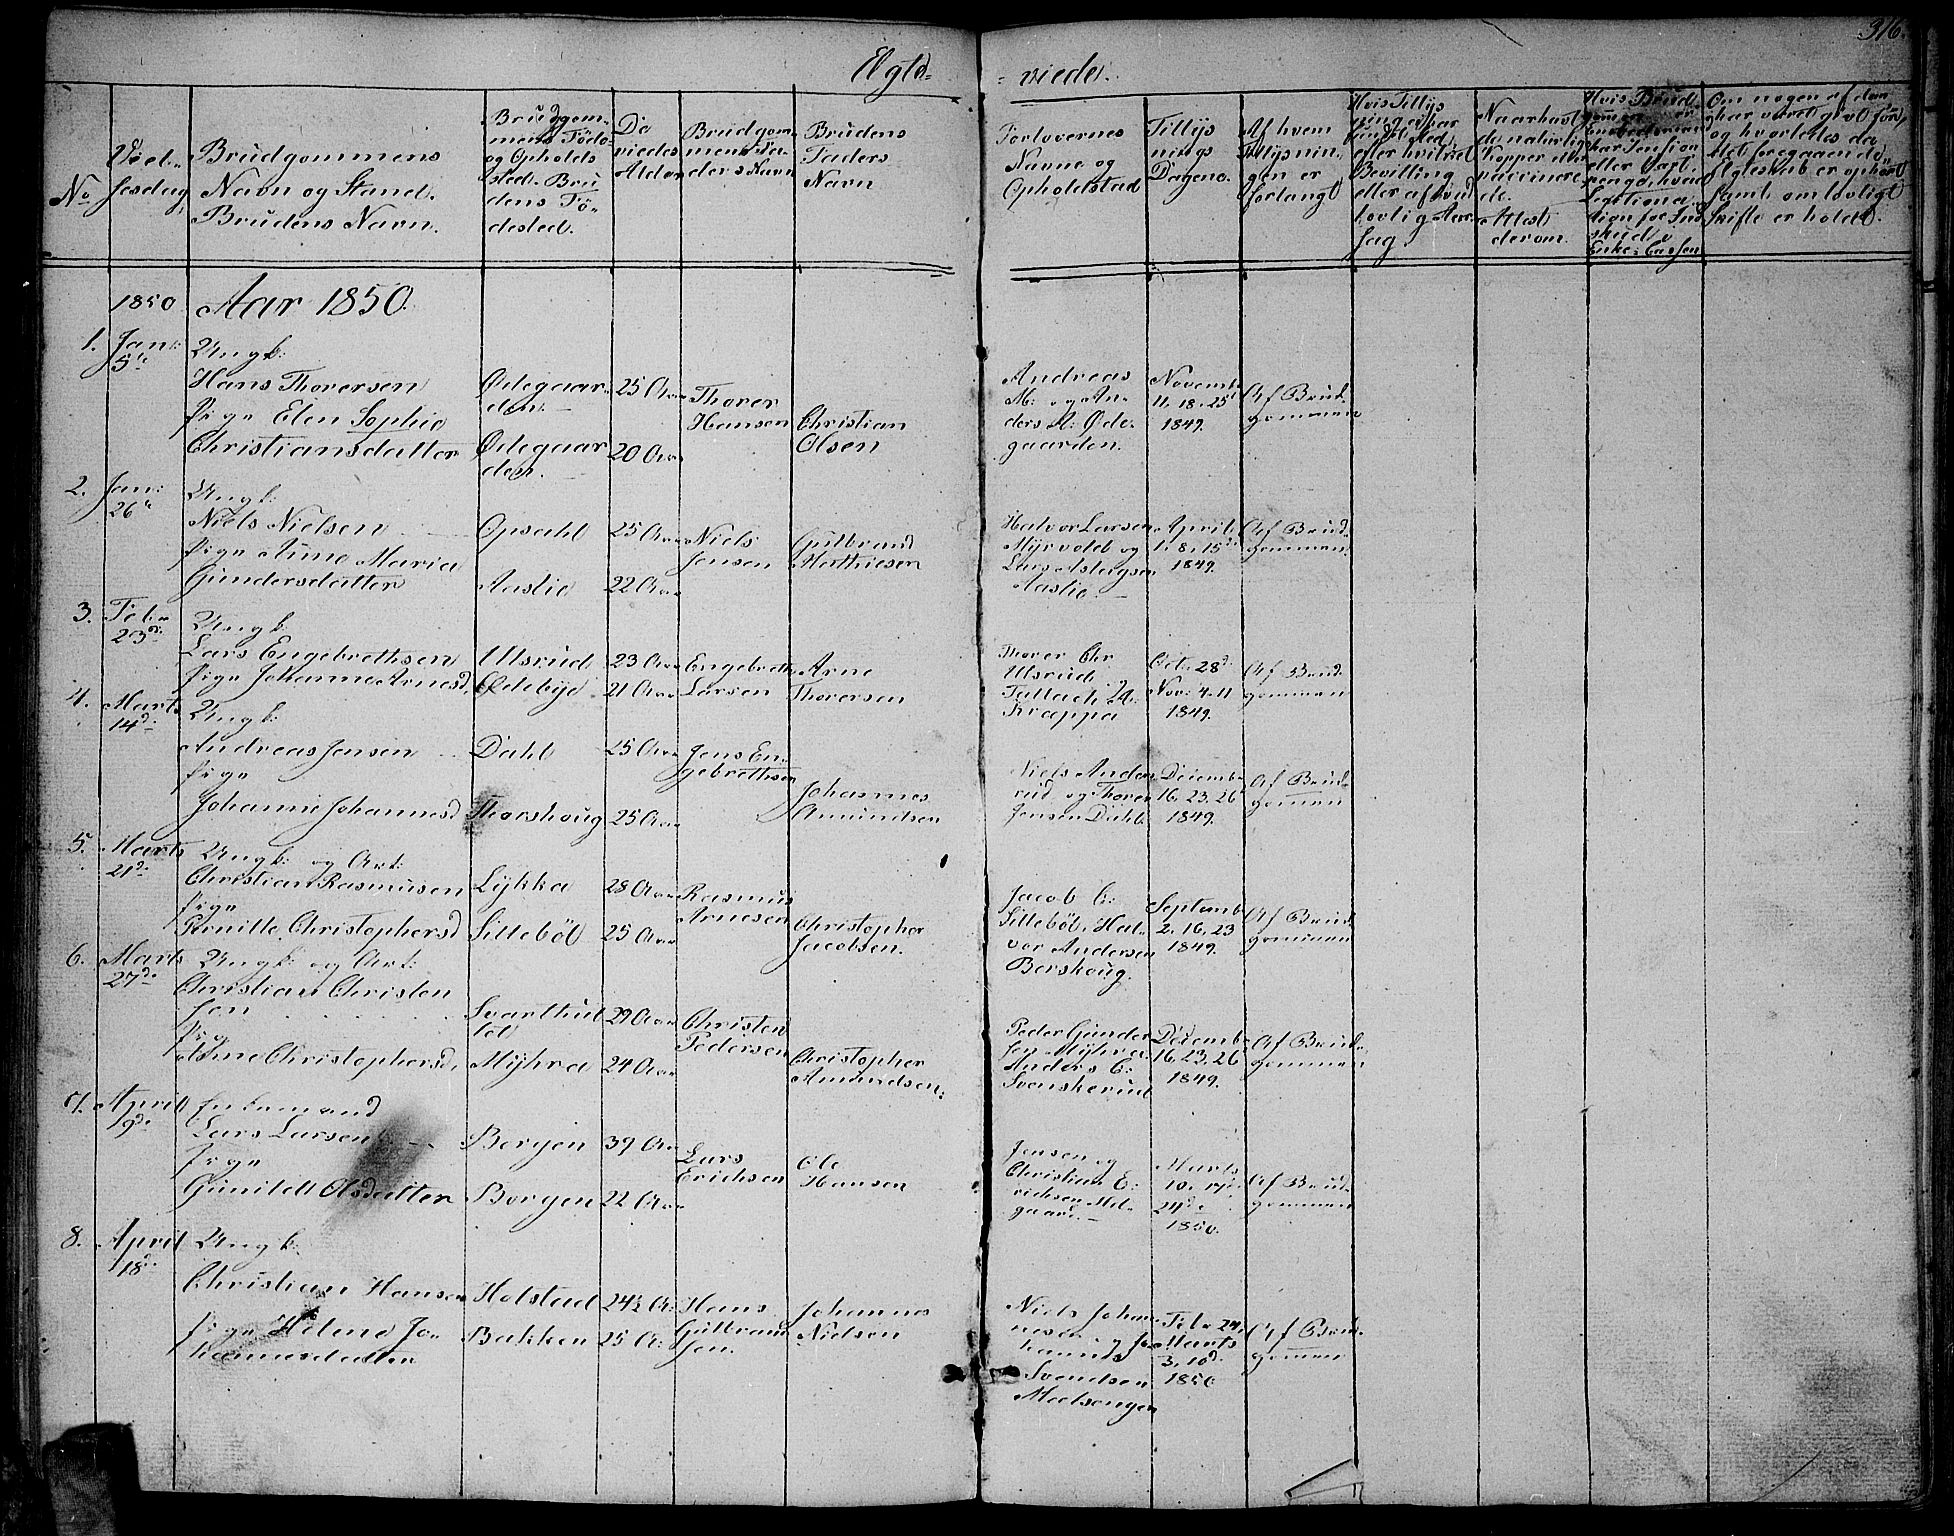 316.
Ægte= =viede.
No
Viel-
sesdag
Brudgommens
Navn og Stand.
Brudens Navn.
Brudgom-
mens Føde
og Opholds
sted. Bru
dens Fö-
desled.
De
viedes
Alder
Brudgom-
mens Fa-
ders Navn
Brudens
Faders
Navn
Forlovernes
Navne og
Opholdstad
Tillys
nings
Dagene
Af hvem
Tillysnin-
gen er
forlangt
Hvis Tillys
ning ei har
fundet sted,
efter hvilket
Bevilling
eller af hvad
lovlig Aar-
sag
Naar havt
de naturlig
Kopper eller
vaccinere
de.
Attest
derom.
Om nogen af dem
har været givt för,
og hvorledes da
det foregaaende
Ægteskab er ophørt
samt om lovligt
Skifte er holdt.
1850 Aar 1850.
1. Jan:
5te
Ungk:
Hans Thorersen
Pige Elen Sophie
Christiansdatter
Ødegaar-
den.
Ødegaar
den.
25 Aar
20 Aar
Thorer
Hansen
Christian
Olsen
Andreas
M: og An-
ders A: Øde-
gaarden.
Novemb
11, 18, 25d
1849.
Af Brud-
gommen
2. Jan:
26de
Ungk:
Niels Nielsen
Pige Anne Maria
Gundersdatter
Opsahl
Aaslie
25 Aar
22 Aar
Niels
Jensen
Gulbrand
Mathiesen
Halvor Larsen
Myrvold og
Lars Aslagsen
Aaslie.
April
1, 8, 15d
1849.
Af Brud-
gommen
3. Feb
23d
Ungk:
Lars Engebrethsen
Pige Johanne Arnesd.
Ulsrud
Ødebye
23 Aar
21 Aar
Engebreth
Larsen
Arne
Thorersen
Thorer Chr
Ulsrud
Tallach H:
Knappa
Oct. 28d
Nov: 4, 11
1849.
Af Brud
gommen
4. Marts
14d
Ungk:
Andreas Jensen
Pige
Johanne Johannesd
Dahl
Thorshoug
25 Aar
25 Aar
Jens En-
gebrethsen
Johannes
Amundsen
Niels Anden
rud, og Thorer
Jensen Dahl.
Decemb
16, 23, 26
1849.
Af Brud-
gommen
5. Marts
21d
Ungk: og Art:
Christian Rasmusen
Pige
Pernille Christophersd
Lykka
Sillebøl
28 Aar
25 Aar
Rasmus
Arnesen
Christopher
Jacobsen.
Jacob C:
Sillebøl, Hal-
vor Andersen
Bershoug.
Septemb
2, 16, 23
1849.
Af Brud
gommen
6. Marts
27d
Ungk: og Art:
Christian Christen
sen
Pige
Anne Christophersd,
Svarthul
Myhra
29 Aar
24 Aar
Christen
Pedersen
Christopher
Amundsen.
Peder Gunder
sen Myhra
Anders C:
Svenskerud
Decemb
16, 23, 26
1849.
Af Brud
gommen
7. April
19d
Enkemand
Lars Larsen
Pige
Gunild Olsdatter
Borgen
Borgen
39 Aar
22 Aar
Lars
Erichsen
Ole
Hansen
Jensen og
Christian E-
richsen Mel-
gaard.
Marts
10, 17d
24d
1850.
Af Brud
gommen
8. April
18d
Ungk:
Christian Hansen
Pige Helene Jo-
hannesdatter
Holstad
Bakken
24½ A:
25 A:
Hans
Gulbrand
sen.
Johannes
Nielsen
Niels Johan
nesen
Svendsen
Melsengen
Feb. 24,
Marts
3, 10d
1850
Af Brud-
gommen